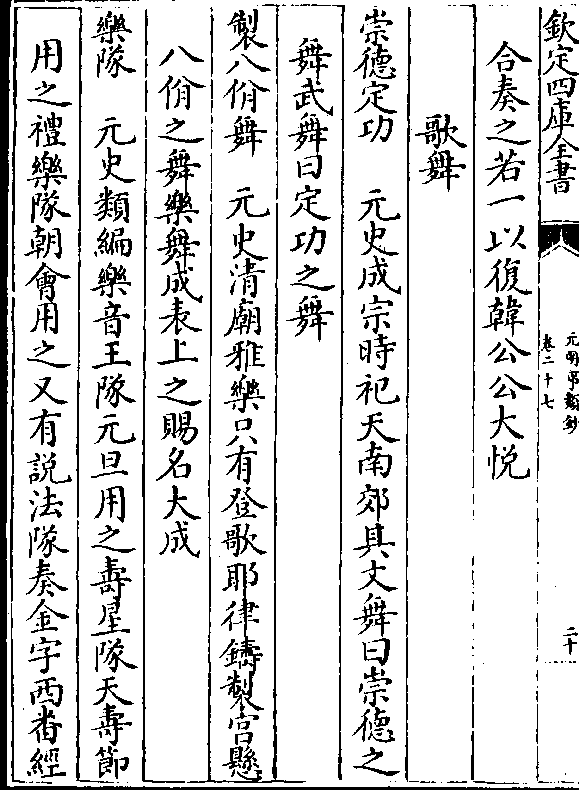 欽定四庫全書
元明事類鈔
卷二十七
二十
合奏之若一以復韓公公大悦
歌舞
崇德定功　元史成宗時祀天南郊具文舞曰崇德之
舞武舞曰定功之舞
製八佾舞　元史清廟雅樂只有登歌耶律鑄製宫懸
八佾之舞樂舞成表上之賜名大成
樂隊　元史類編樂音王隊元旦用之壽星隊天壽節
用之禮樂隊朝會用之又有説法隊奏金字西番經